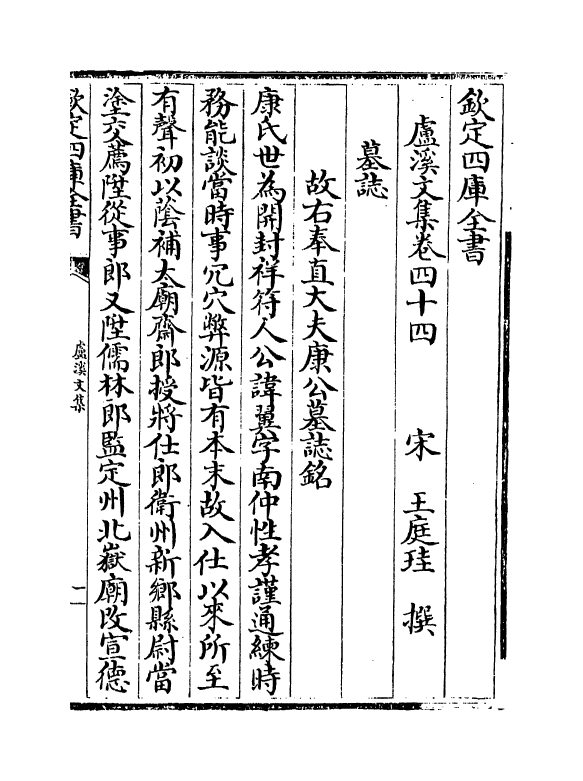 欽定四庫全書
盧溪文集卷四十四　宋　王庭珪　撰
墓誌
故右奉直大夫康公墓誌銘
康氏世為開封祥符人公諱翼字南仲性孝謹通練時
務能談當時事冗穴弊源皆有本末故入仕以來所至
有聲初以蔭補太廟齋郎授將仕郎衛州新鄉縣尉當
塗交薦陞從事郎又陞儒林郎監定州北嶽廟改宣德
欽定四庫全書
盧溪文集
一